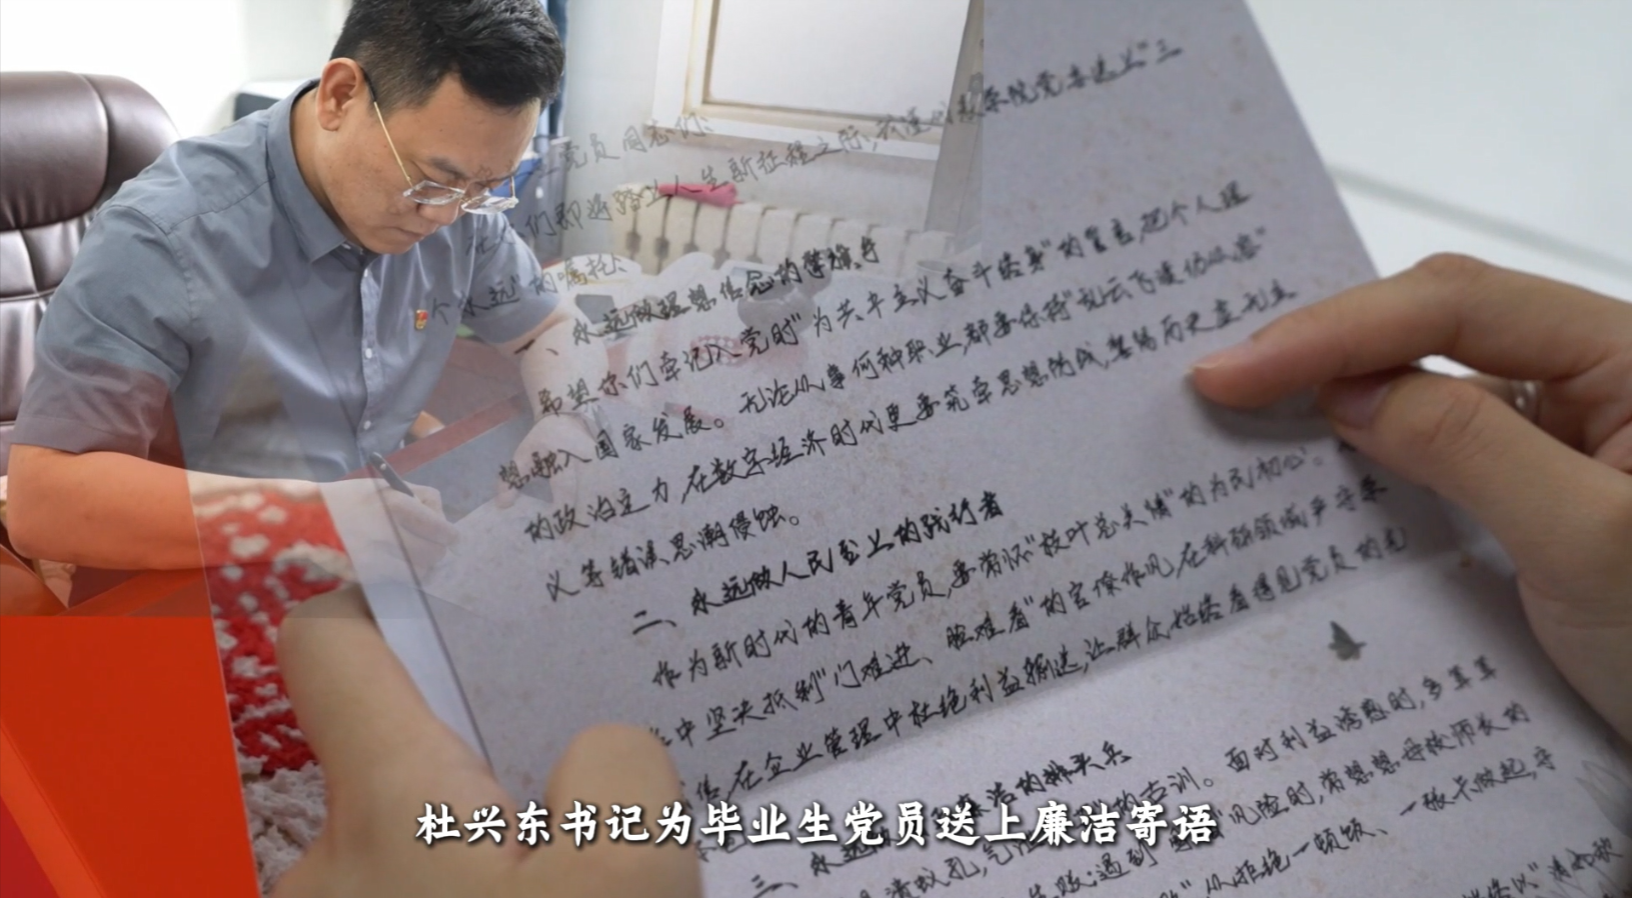 党员同志们:
在你们即将踏上人生新征程之际,
院党委送上"三
个永远"的嘱托:
一、永远做理想信念的擎旗手
希望你们牢记入党时"为共产主义奋斗终身"的誓言,把个人理
想融入国家发展。无论从事何种职业,都要保持"乱云飞渡仍从容"
的政治定力,在数字经济时代更要筑牢思想防线,警惕历史虚无主
义等错误思潮侵蚀。
二、永远做人民至上的践行者
作为新时代的青年党员,要常怀"枝叶总关情"的为民初心。
中坚决抵制"门难进、脸难看"的官僚作风,在科研领域严守学
信,在企业管理中杜绝利益输送,让群众始终看得见党员的光
三、永远做 廉洁的排头兵
的古训。面对利益诱惑时,多算算
账;遇到 风险时,常想想母校师长的
从拒绝一顿饭、一张卡做起,守
杜兴东书记为毕业生党员送上廉洁寄语